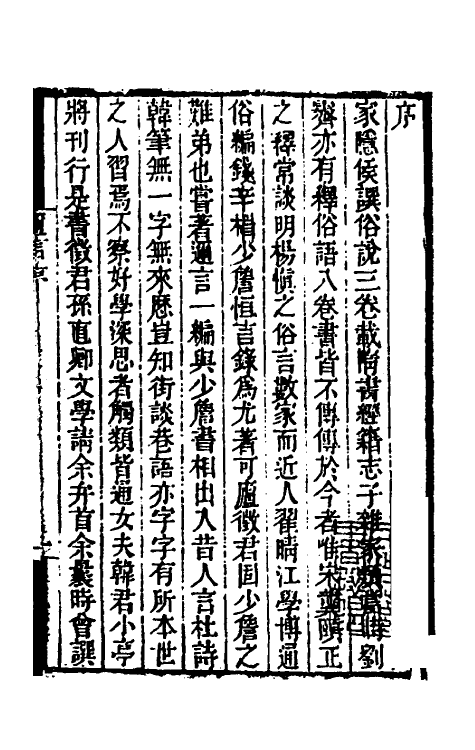 序
家隱侯譔俗說三卷載隋書經籍志子雜家類劉
齊亦有釋俗語八卷書皆不傳傳於今者惟宋龔頤正
之釋常談明楊慎之俗言數家而近人翟晴江學博通
俗編錢辛楣少詹恒言錄爲尤著可廬徵君固少詹之
難弟也嘗著邇言一編與少詹書相出入昔人言杜詩
韓筆無一字無來歷豈知街談巷語亦字字有所本世
之人習焉不察好學深思者觸類皆通女夫韓君小亭
將刊行是書徵君孫直卿文學請余弁首余曩時會譔